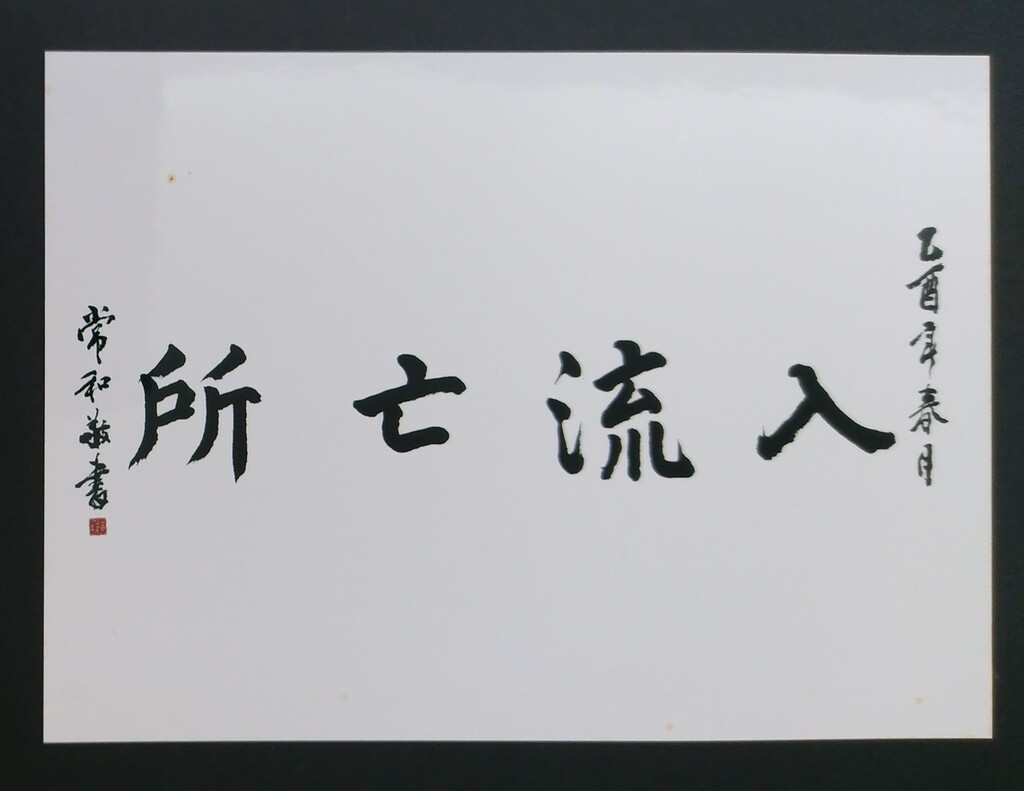 乙酉年春月
入流亡所
常和敬書